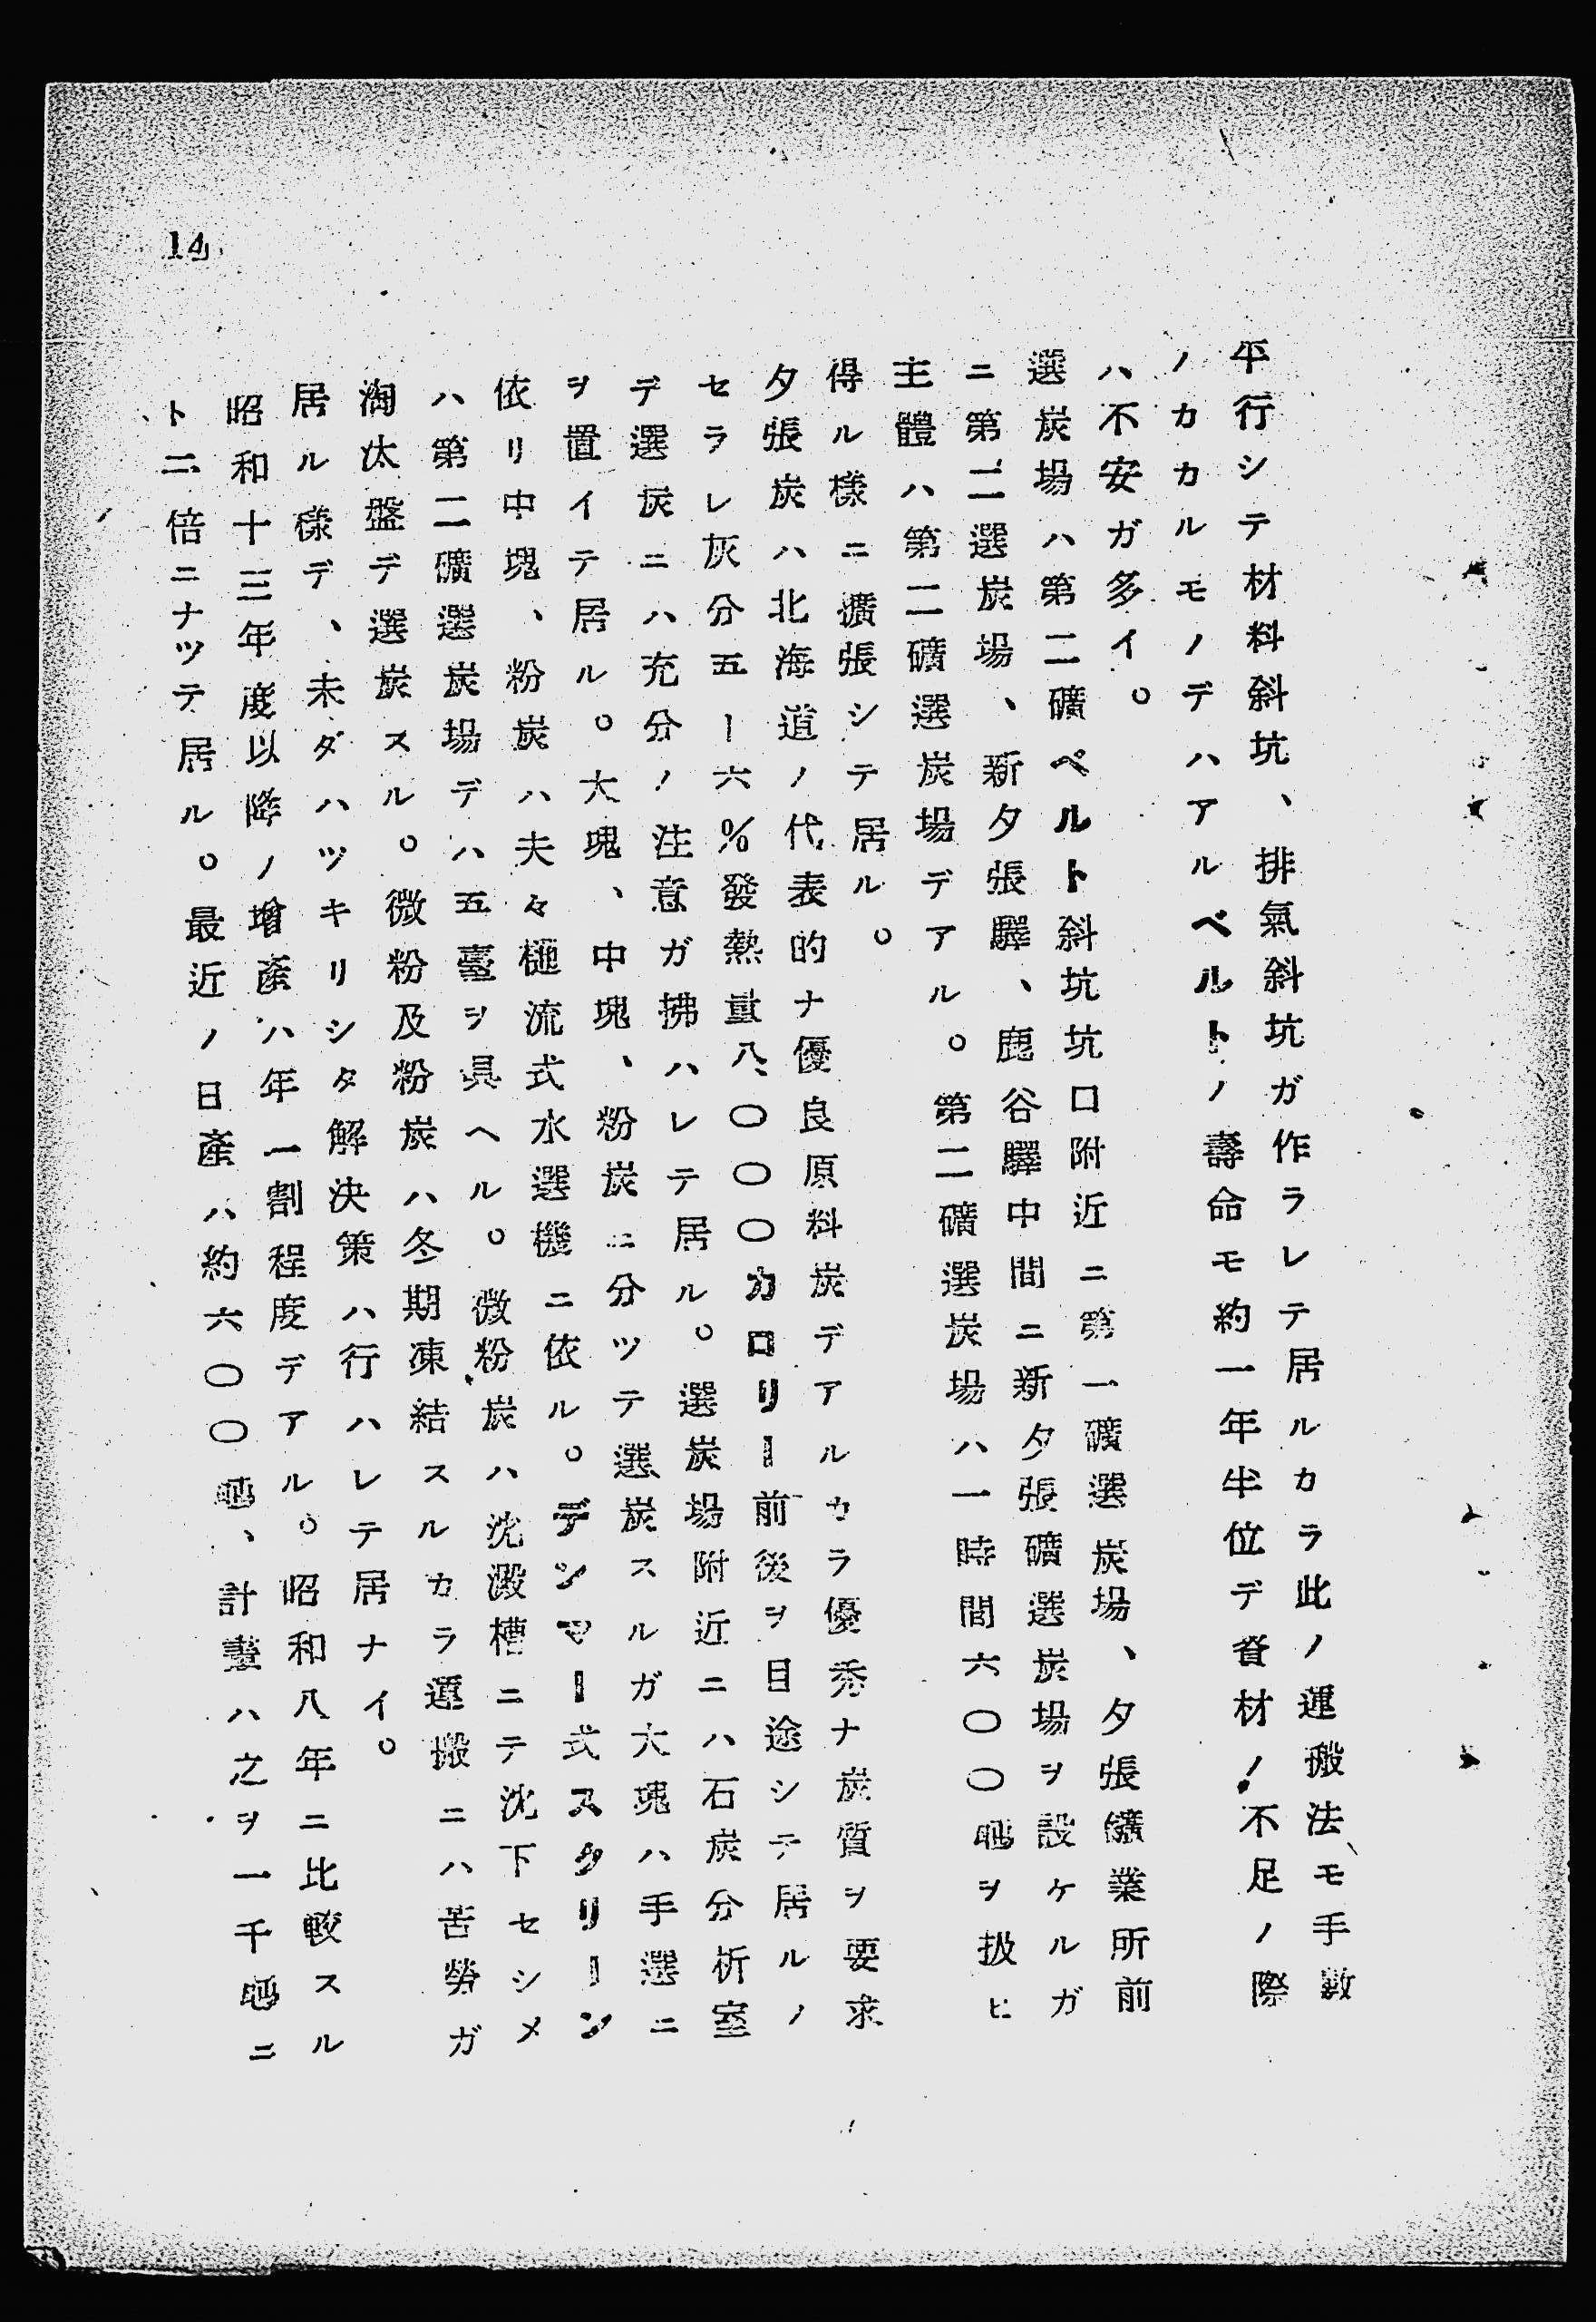 平行シテ材料斜坑、排氣斜坑ガ作ラレテ居ルカラ此ノ運搬法モ手數
ノカカルモノデハアルベルトノ壽命モ約一年半位デ資材ノ不足ノ際
ハ不安ガ多イ。
選炭場ハ第二礦ベルト斜坑坑口附近ニ第一礦選炭場、夕張鑛業所前
ニ第二選炭場、新夕張驛、鹿谷驛中間ニ新夕張礦選炭場ヲ設ケルガ
主體ハ第二礦選炭場デアル。第二礦選炭場ハ一時間六〇〇瓲ヲ扱ヒ
得ル樣ニ擴張シテ居ル。
夕張炭ハ北海道ノ代表的ナ優良原料炭デアルカラ優秀ナ炭質ヲ要求
セラレ灰分五ー六%發熱量八、〇〇〇カロリー前後ヲ目途シテ居ルノ
デ選炭ニハ充分ノ注意ガ拂ハレテ居ル。選炭場附近ニハ石炭分析室
ヲ置イテ居ル。大塊、中塊、粉炭ニ分ツテ選炭スルガ大塊ハ手選ニ
依リ中塊、粉炭ハ夫々樋流式水選機ニ依ル。デンマー式スタリーン
ハ第二礦選炭場デハ五臺ヲ具ヘル。微粉炭ハ沈澱槽ニテ沈下セシメ
淘汰盤デ選炭スル。微粉及粉炭ハ冬期凍結スルカラ運搬ニハ苦勞ガ
居ル樣デ、未ダハツキリシタ解決策ハ行ハレテ居ナイ。
昭和十三年度以降ノ增產ハ年一割程度デアル。昭和八年ニ比較スル
ト二倍ニナツテ居ル。最近ノ日產ハ約六〇〇〇瓲、計畫ハ之ヲ一千瓲ニ
14